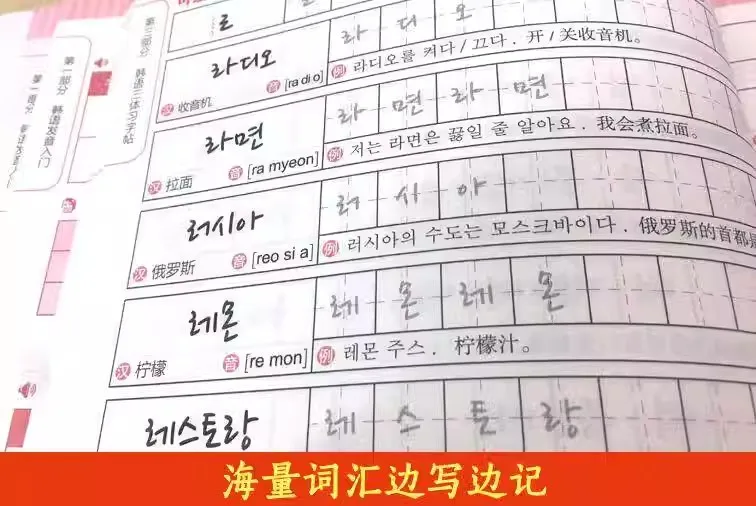 第一部分 韩语发音入门
第一部分 韩语发音入门
第三部分 韩语三体习字帖
라디오
汉 收音机 音 [ra di o]
라 디 오
例 라디오를 켜다 / 끄다. 开 / 关收音机。
라면
汉 拉面 音 [ra myeon]
라 면 라 면
例 저는 라면은 끓일 줄 알아요. 我会煮拉面。
러시아
汉 俄罗斯 音 [reo si a]
러 시 아
例 러시아의 수도는 모스크바이다. 俄罗斯的首都
레몬
汉 柠檬 音 [re mon]
레 몬 레 몬
例 레몬 주스. 柠檬汁。
레스토랑
레 스 토 랑
海量词汇边写边记